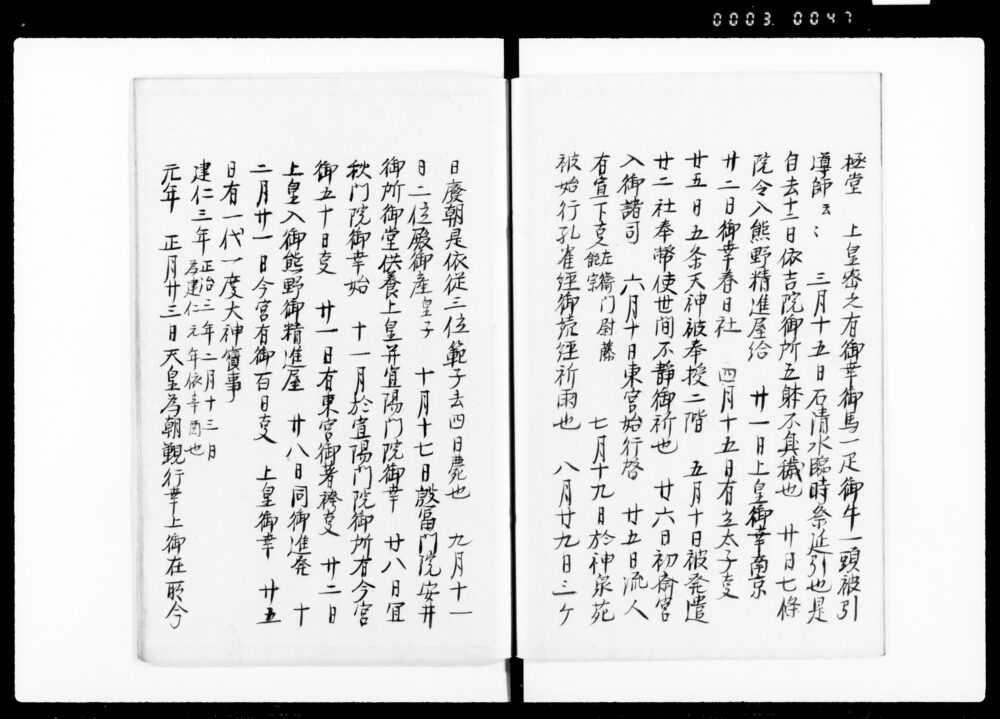 0003 0047
極堂 上皇密之有御幸御馬一疋御牛一頭被引
導師云〻 三月十五日石清水臨時祭延引也是
自去十二日依吉院御所五躰不具穢也 廿日七條
院令入熊野精進屋給 廿一日上皇御幸南京
廿二日御幸春日社 四月十五日有立太子事
廿五日五条天神被奉授二階 五月十日被発遣
廿二社奉幣使世間不静御祈也 廿六日初斎宮
入御諸司 六月十日東宮始行啓 廿五日流人
有宣下事左衛門尉藤能宗 七月十九日於神泉苑
被始行孔雀経御読経祈雨也 八月廿九日三ケ
日廃朝是依従三位範子去四日薨也 九月十一
日二位殿御産皇子 十月十七日殷富門院安井
御所御堂供養上皇并宜陽門院御幸 廿八日宜
秋門院御幸始 十一月於宣陽門院御所有今宮
御五十日事 廿一日有東宮御著袴事 廿二日
上皇入御熊野御精進屋 廿八日同御進発 十
二月廿一日今宮有御百日事 上皇御幸 廿五
日有一代一度大神寳事
建仁三年正治三年二月十三日為建仁元年依辛酉也
元年 正月廿三日天皇為朝覲行幸上御在所今